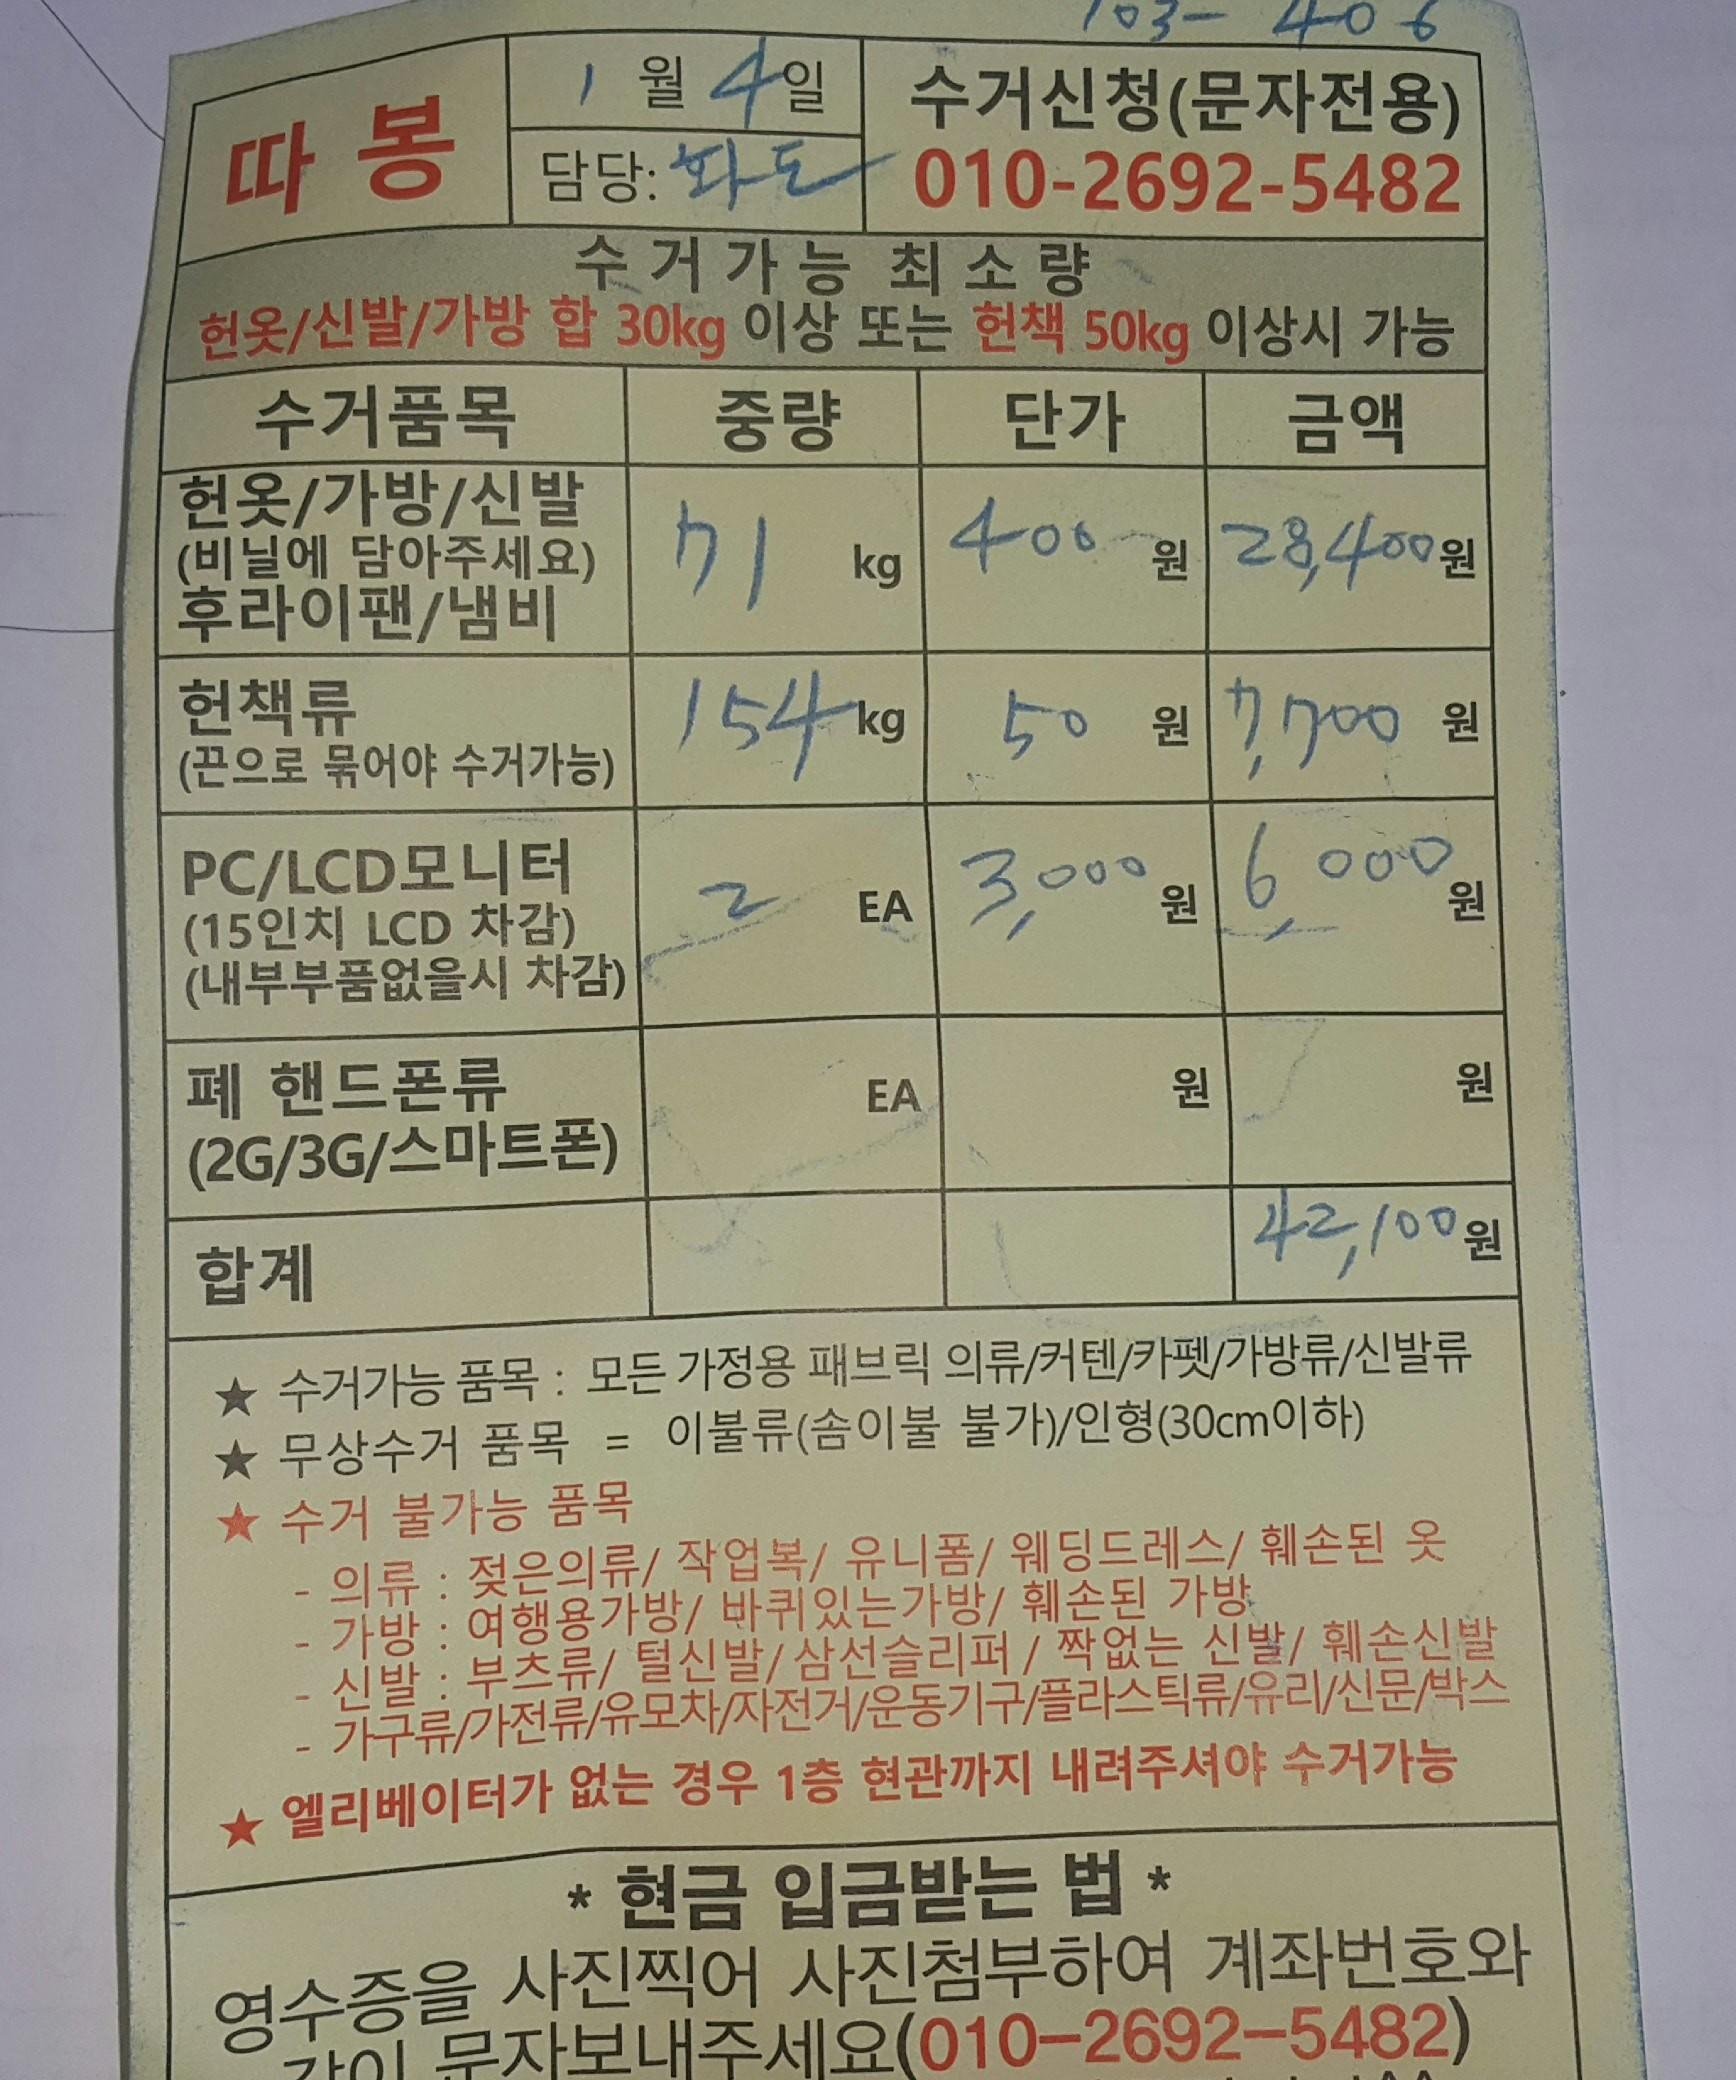 103-406
따봉
1월 4일
담당: 파도
수거신청(문자전용)
010-2692-5482
수거가능 최소량
헌옷/신발/가방 합 30kg 이상 또는 헌책 50kg 이상시 가능
수거품목 중량 단가 금액
헌옷/가방/신발
(비닐에 담아주세요)
후라이팬/냄비
71 kg 400 원 28,400원
헌책류
(끈으로 묶어야 수거가능)
154 kg 50 원 7,700 원
PC/LCD모니터
(15인치 LCD 차감)
(내부부품없을시 차감)
2 EA 3,000 원 6,000 원
폐 핸드폰류
(2G/3G/스마트폰)
EA 원 원
합계 42,100원
★ 수거가능 품목 : 모든 가정용 패브릭 의류/커텐/카펫/가방류/신발류
★ 무상수거 품목 = 이불류(솜이불 불가)/인형(30cm이하)
★ 수거 불가능 품목
- 의류 : 젖은의류/ 작업복/ 유니폼/ 웨딩드레스/ 훼손된 옷
- 가방 : 여행용가방/ 바퀴있는가방/ 훼손된 가방
- 신발 : 부츠류/ 털신발/ 삼선슬리퍼 / 짝없는 신발/ 훼손신발
- 가구류/가전류/유모차/자전거/운동기구/플라스틱류/유리/신문/박스
★ 엘리베이터가 없는 경우 1층 현관까지 내려주셔야 수거가능
* 현금 입금받는 법 *
영수증을 사진찍어 사진첨부하여 계좌번호와
같이 문자보내주세요(010-2692-5482)